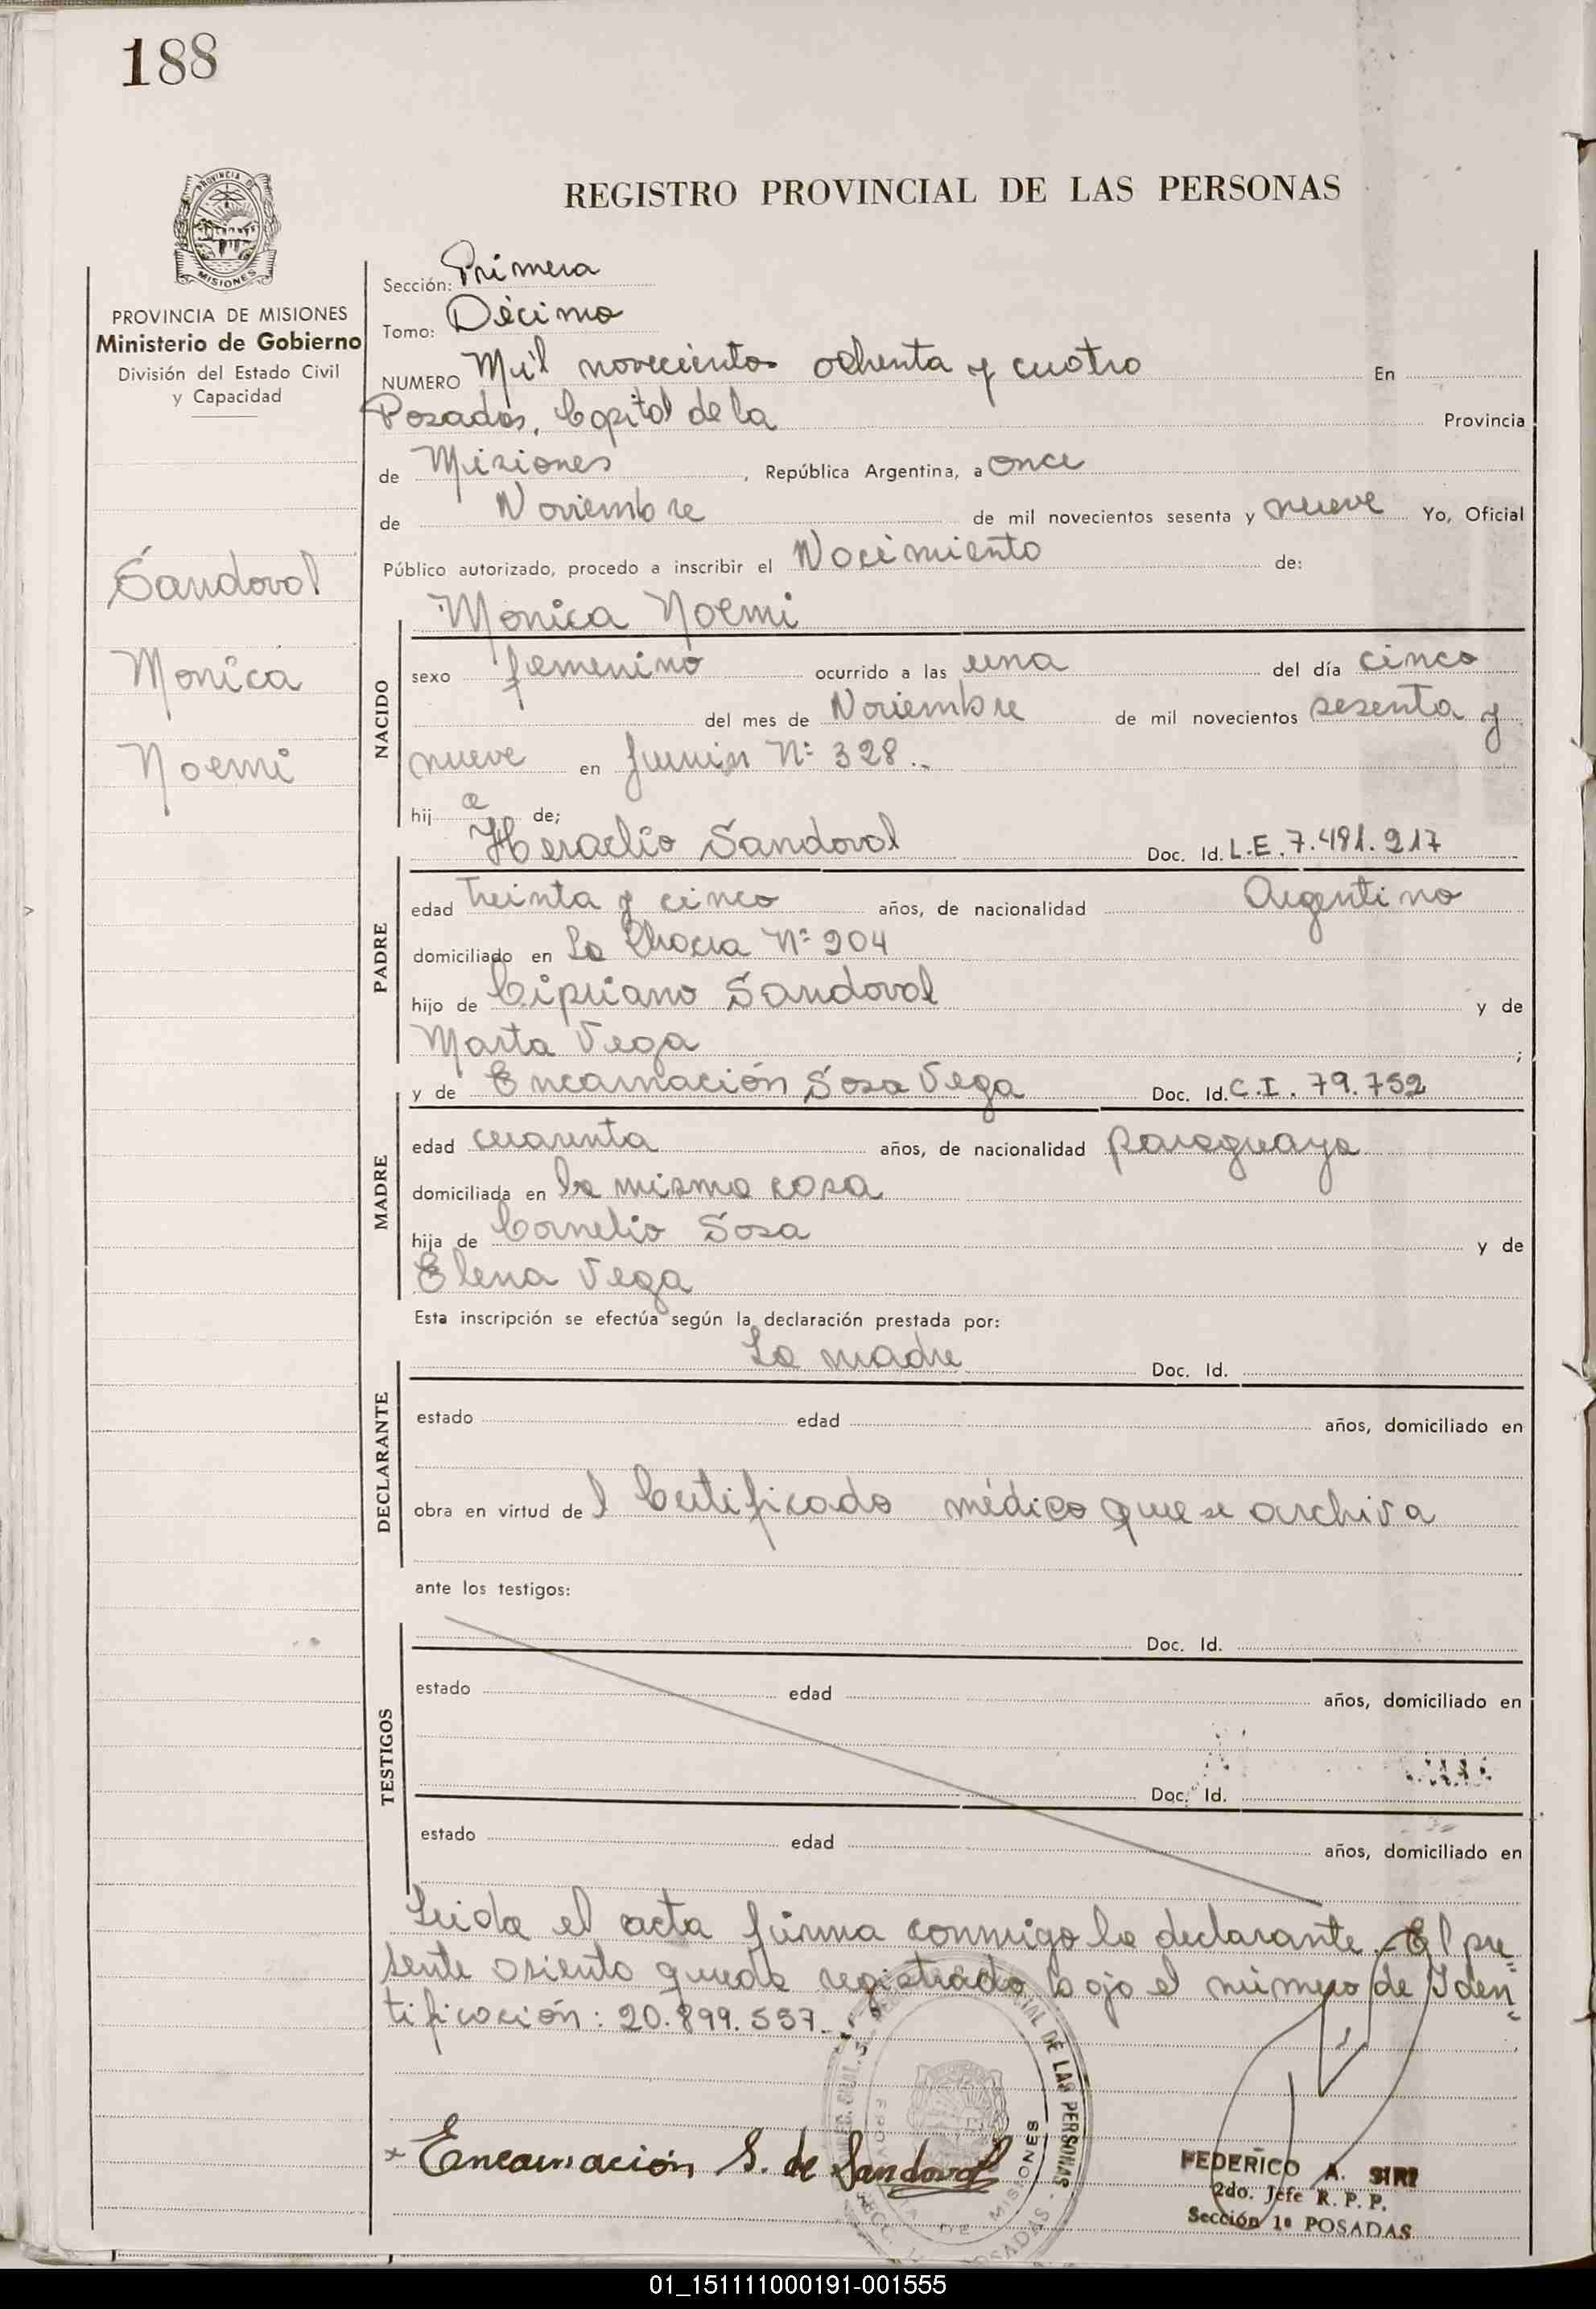 188
PROVINCIA DE
MISIONES
REGISTRO PROVINCIAL DE LAS PERSONAS
PROVINCIA DE MISIONES
Ministerio de Gobierno
División del Estado Civil
y Capacidad
Sandoval
Monica
Noemi
Sección: Primera
Tomo: Décimo
NUMERO Mil novecientos ochenta y cuatro En
Posadas, Capital de la Provincia
de Misiones, República Argentina, a once
de Noviembre de mil novecientos sesenta y nueve Yo, Oficial
Público autorizado, procedo a inscribir el Nacimiento de:
NACIDO
Monica Noemi
sexo femenino ocurrido a las una del día cinco
del mes de Noviembre de mil novecientos sesenta y
nueve en Junin Nº 328.
hija de;
PADRE
Heraclio Sandoval Doc. Id. L.E. 7.481.217
edad treinta y cinco años, de nacionalidad Argentino
domiciliado en La Chacra Nº 204
hijo de Cipriano Sandoval y de
Marta Vega ;
MADRE
y de Encarnación Sosa Vega Doc. Id. C.I. 79.752
edad cuarenta años, de nacionalidad paraguaya
domiciliada en la misma casa
hija de Cornelio Sosa y de
Elena Vega
Esta inscripción se efectúa según la declaración prestada por:
DECLARANTE
La madre Doc. Id.
estado edad años, domiciliado en
obra en virtud del Certificado médico que se archiva
ante los testigos:
TESTIGOS
Doc. Id.
estado edad años, domiciliado en
Doc. Id.
estado edad años, domiciliado en
Leida el acta firma conmigo la declarante.- El pre=
sente asiento queda registrado bajo el número de Iden=
tificación: 20.899.557.-
x Encarnación S. de Sandoval
DE LAS PERSONAS
MISIONES
POSADAS
FEDERICO A. SIRI
2do. Jefe R. P. P.
Sección 1ª POSADAS
01_151111000191-001555